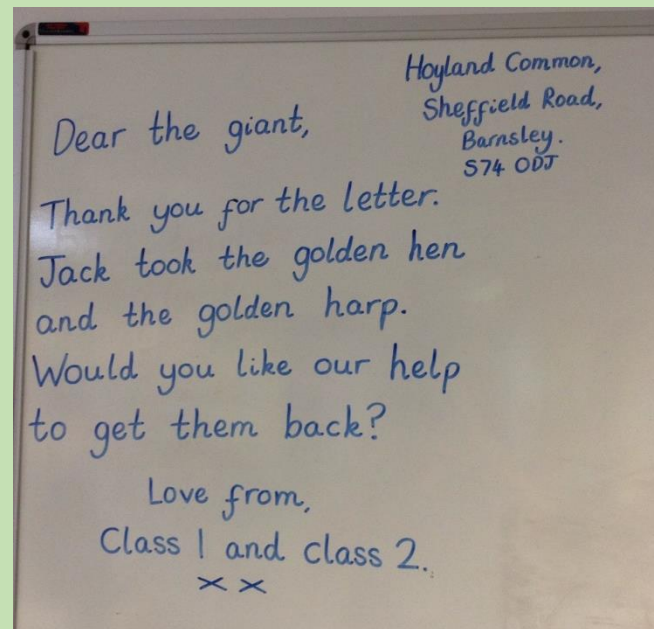 Hoyland Common,
Sheffield Road,
Barnsley.
S74 0DJ
Dear the giant,
Thank you for the letter.
Jack took the golden hen
and the golden harp.
Would you like our help
to get them back?
Love from,
Class 1 and class 2.
x x